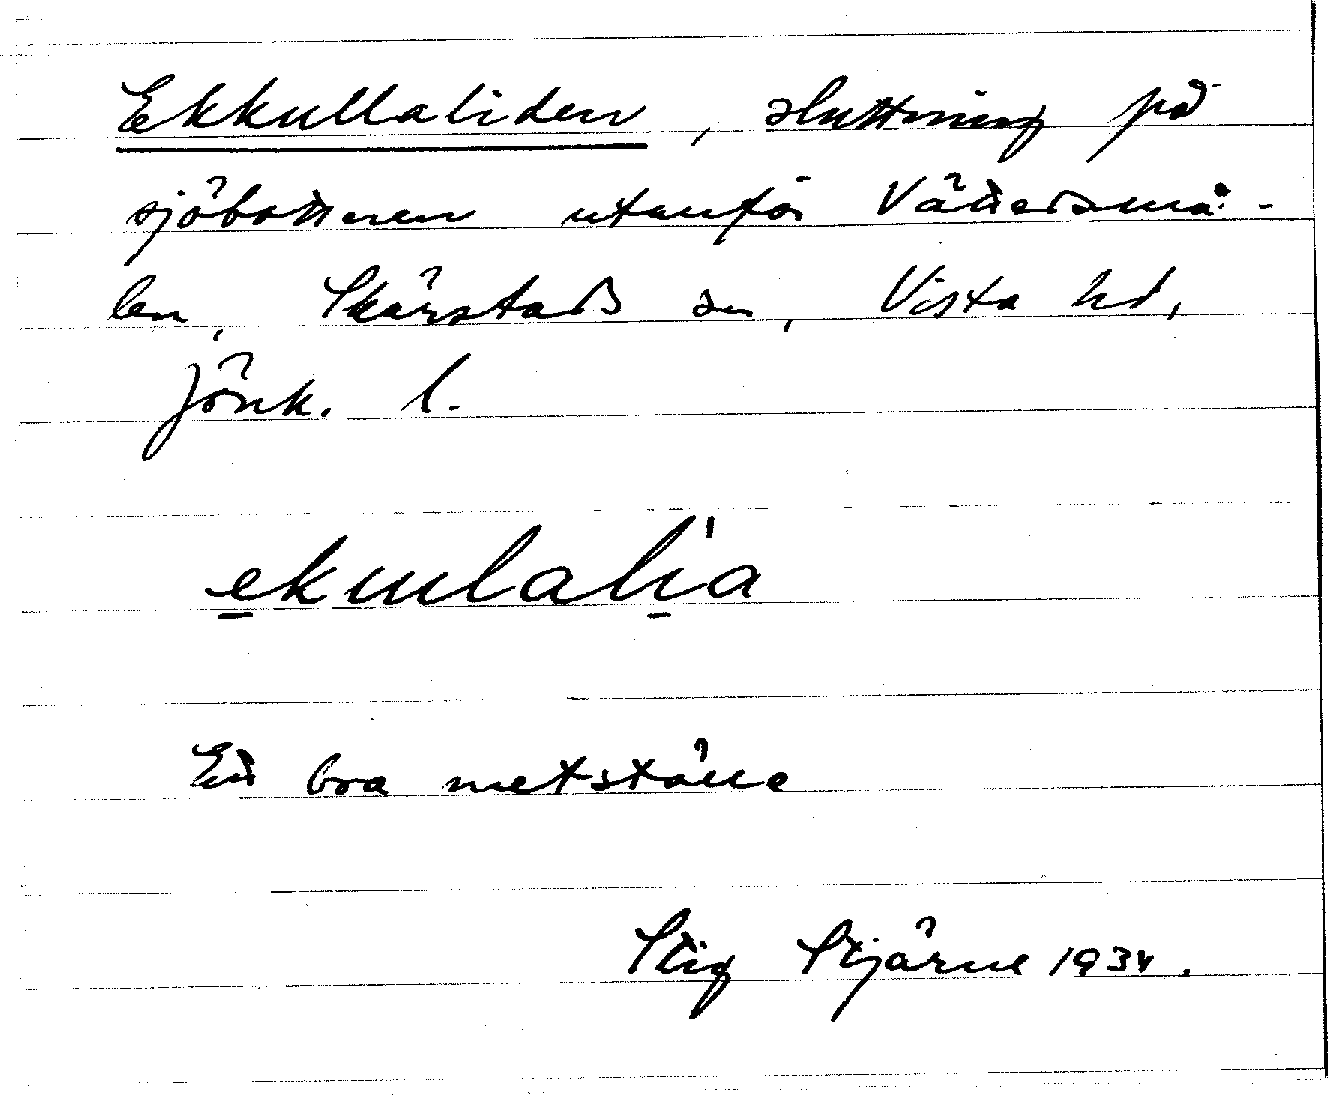 Ekkullaliden, sluttning på
sjöbottnen utanför Vättersmå-
len, Skärstads sn, Vista hd,
Jönk. l.
ekulalia
Ett bra metställe
Stig Stjärne 1934.